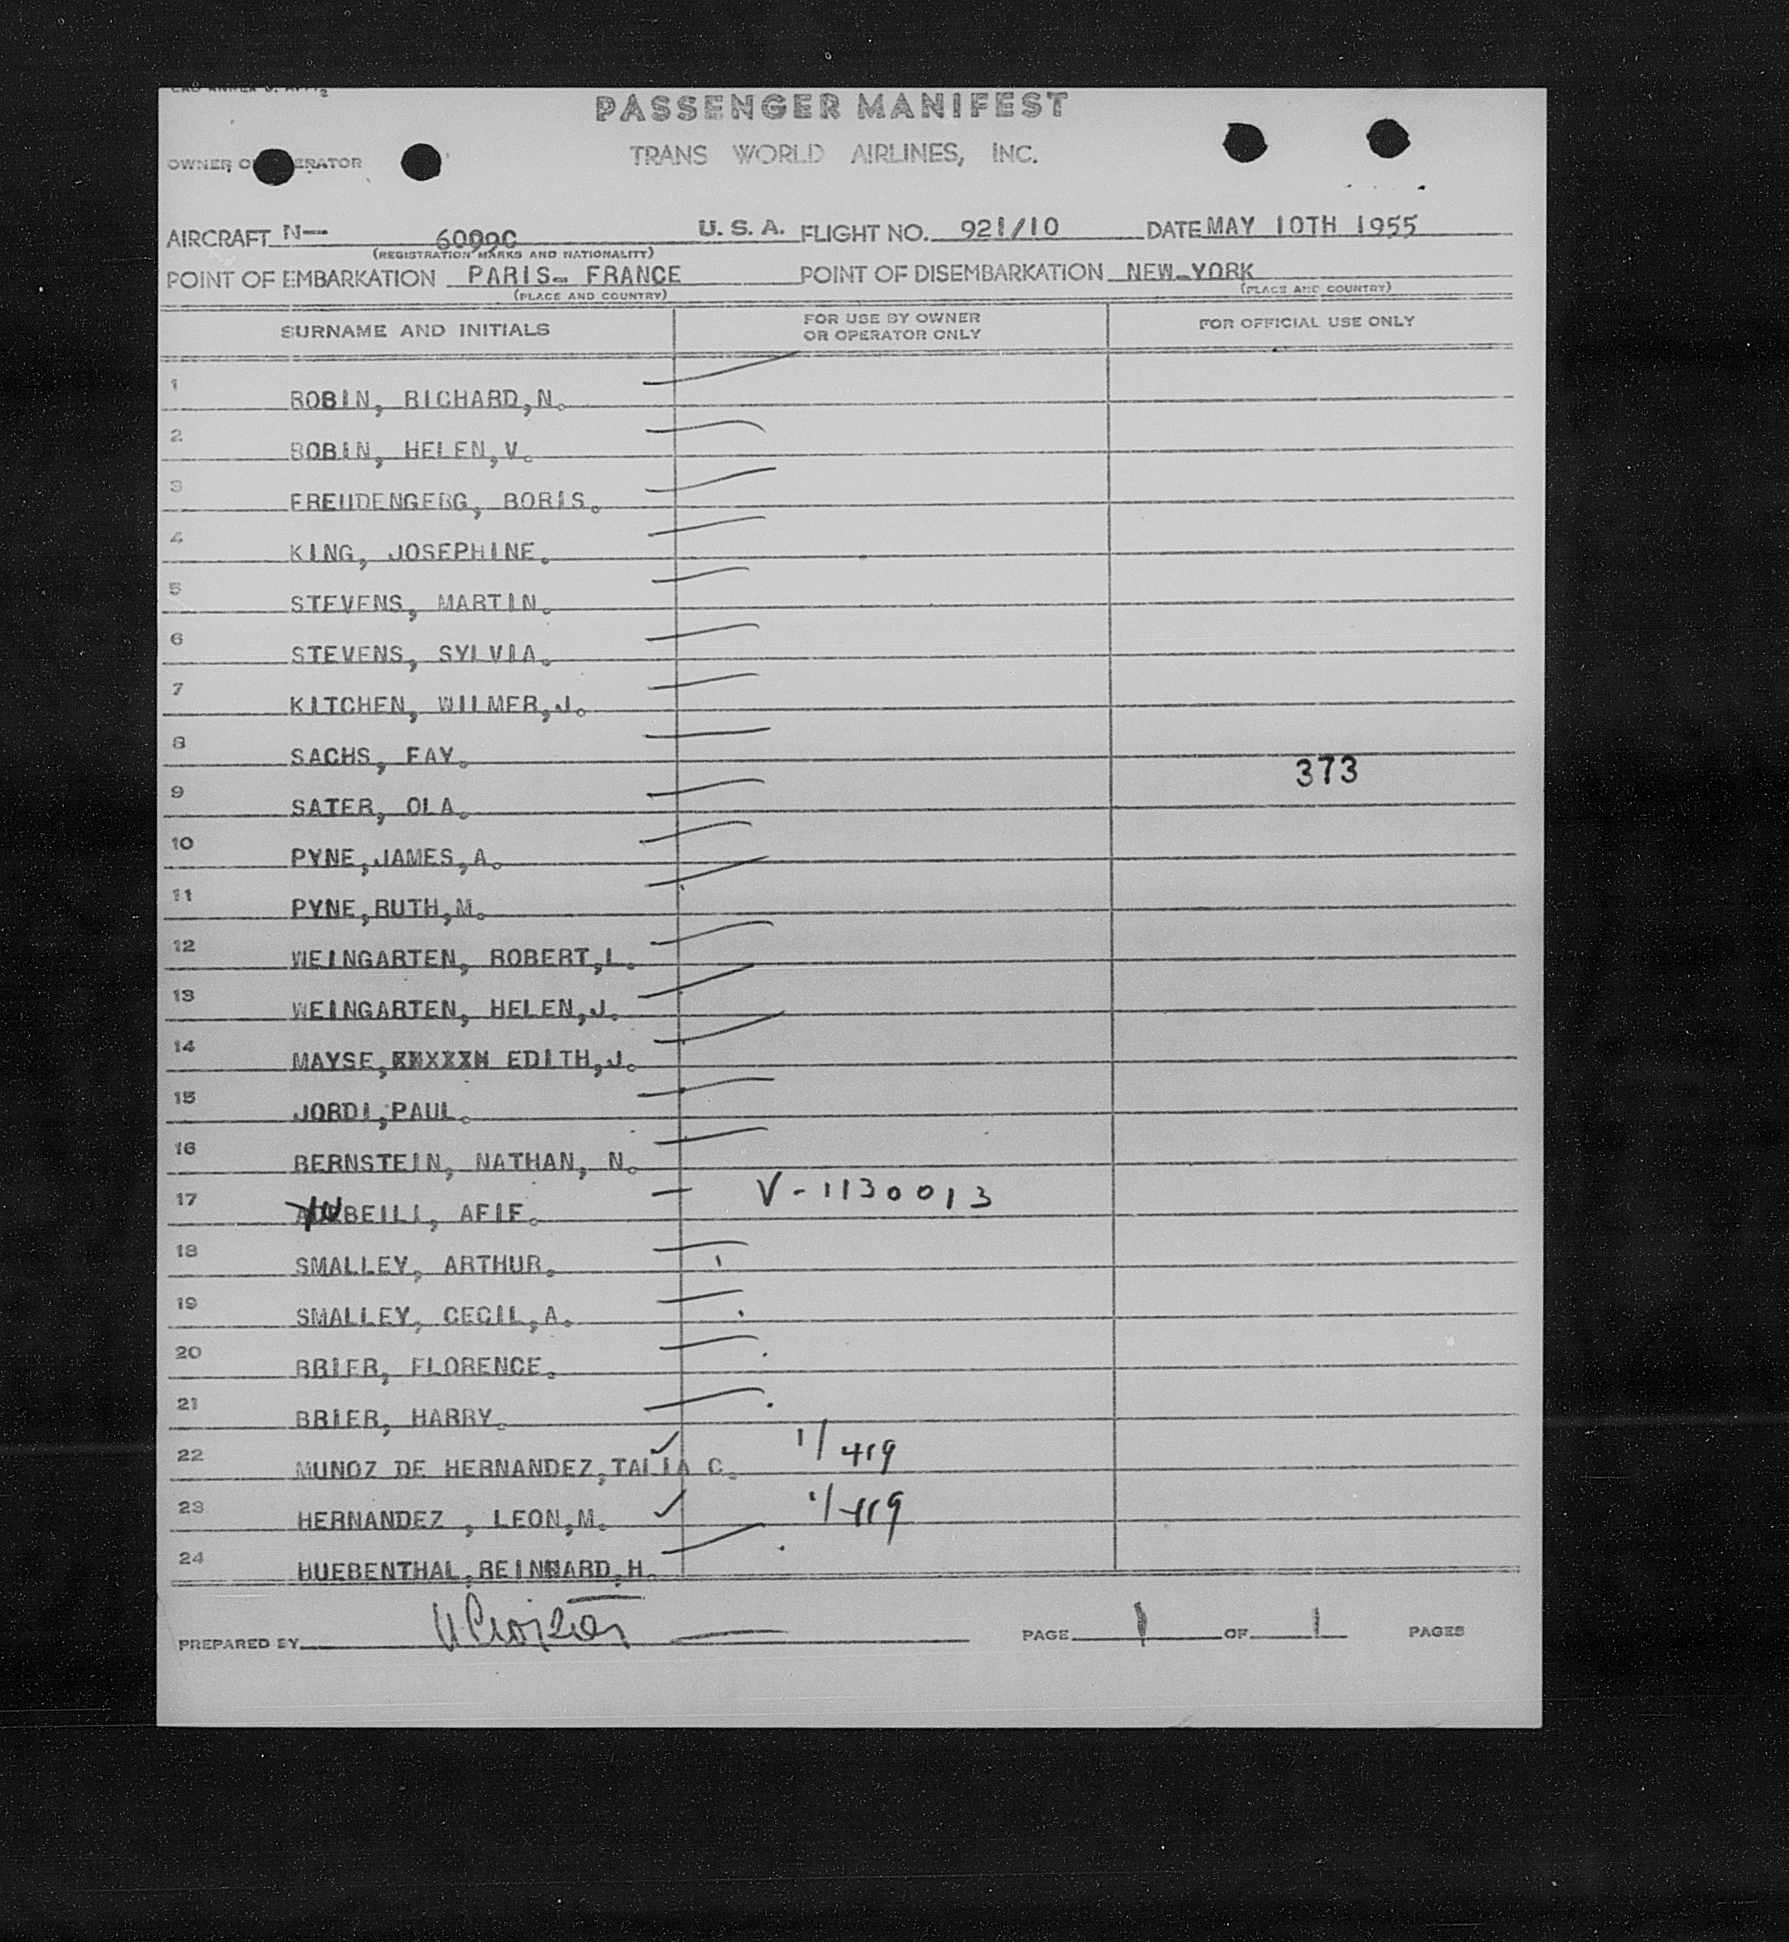 PASSENGER MANIFEST
OWNER OR OPERATOR TRANS WORLD AIRLINES, INC.
AIRCRAFT N- U.S.A. FLIGHT NO. 921/10 DATE MAY 10TH 1955
(REGISTRATION MARKS AND NATIONALITY)
POINT OF EMBARKATION PARIS- FRANCE POINT OF DISEMBARKATION NEW-YORK
(PLACE AND COUNTRY) (PLACE AND COUNTRY)
SURNAME AND INITIALS FOR USE BY OWNER OR OPERATOR ONLY FOR OFFICIAL USE ONLY
1 ROBIN, RICHARD,N.
2 ROBIN, HELEN,V.
3 FREUDENGERG, BORIS.
4 KING, JOSEPHINE.
5 STEVENS, MARTIN.
6 STEVENS, SYLVIA.
7 KITCHEN, WILMER,J.
8 SACHS, FAY.
373
9 SATER, OLA.
10 PYNE,JAMES,A.
11 PYNE,RUTH,M.
12 WEINGARTEN, ROBERT,L.
13 WEINGARTEN, HELEN,J.
14 MAYSE, EDITH,J.
15 JORDI,PAUL.
16 BERNSTEIN, NATHAN, N.
17 AFIF. V-1130013
18 SMALLEY, ARTHUR.
19 SMALLEY, CECIL,A.
20 BRIER, FLORENCE.
21 BRIER, HARRY.
22 MUNOZ DE HERNANDEZ,TALIA C. 1/419
23 HERNANDEZ , LEON,M. 1/419
24 HUEBENTHAL,REINHARD,H.
PREPARED BY PAGE 1 OF 1 PAGES